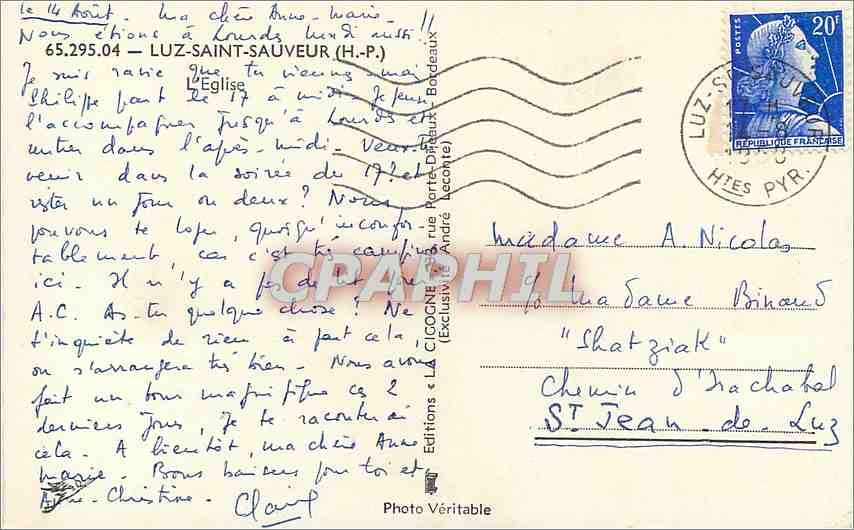 le 14 Août. Ma chère Anne-Marie.
Nous étions à Lourdes lundi aussi !!
65.295.04 — LUZ-SAINT-SAUVEUR (H.-P.)
L'Eglise
Je suis ravie que tu viennes - mais
Philippe part le 17 à midi - Je pense
l'accompagner jusqu'à Lourdes et
rentrer dans l'après-midi. Veux-tu
venir dans la soirée du 17 ? et
rester un jour ou deux ? Nous
pouvons te loger, quoiqu'inconfor-
tablement, car c'est très camping
ici. Il n'y a pas de
A.C. As-tu quelque chose ? Ne
t'inquiète de rien à part cela,
on s'arrangera très bien. Nous avons
fait un tour magnifique ces 2
derniers jours, je te raconterai
cela. A bientôt, ma chère Anne
Marie. Bons baisers pour toi et
Anne-Christine.
Editions « LA CIGOGNE » rue Porte-Dijeaux - Bordeaux
(Exclusivité André Leconte)
Photo Véritable
CPAPHIL
POSTES
20F
RÉPUBLIQUE FRANÇAISE
LUZ-ST-SAUVEUR
HTES PYR.
Madame A. Nicolas
c/o Madame Binaud
"Shatziak"
Chemin d'Irachabal
ST Jean-de-Luz